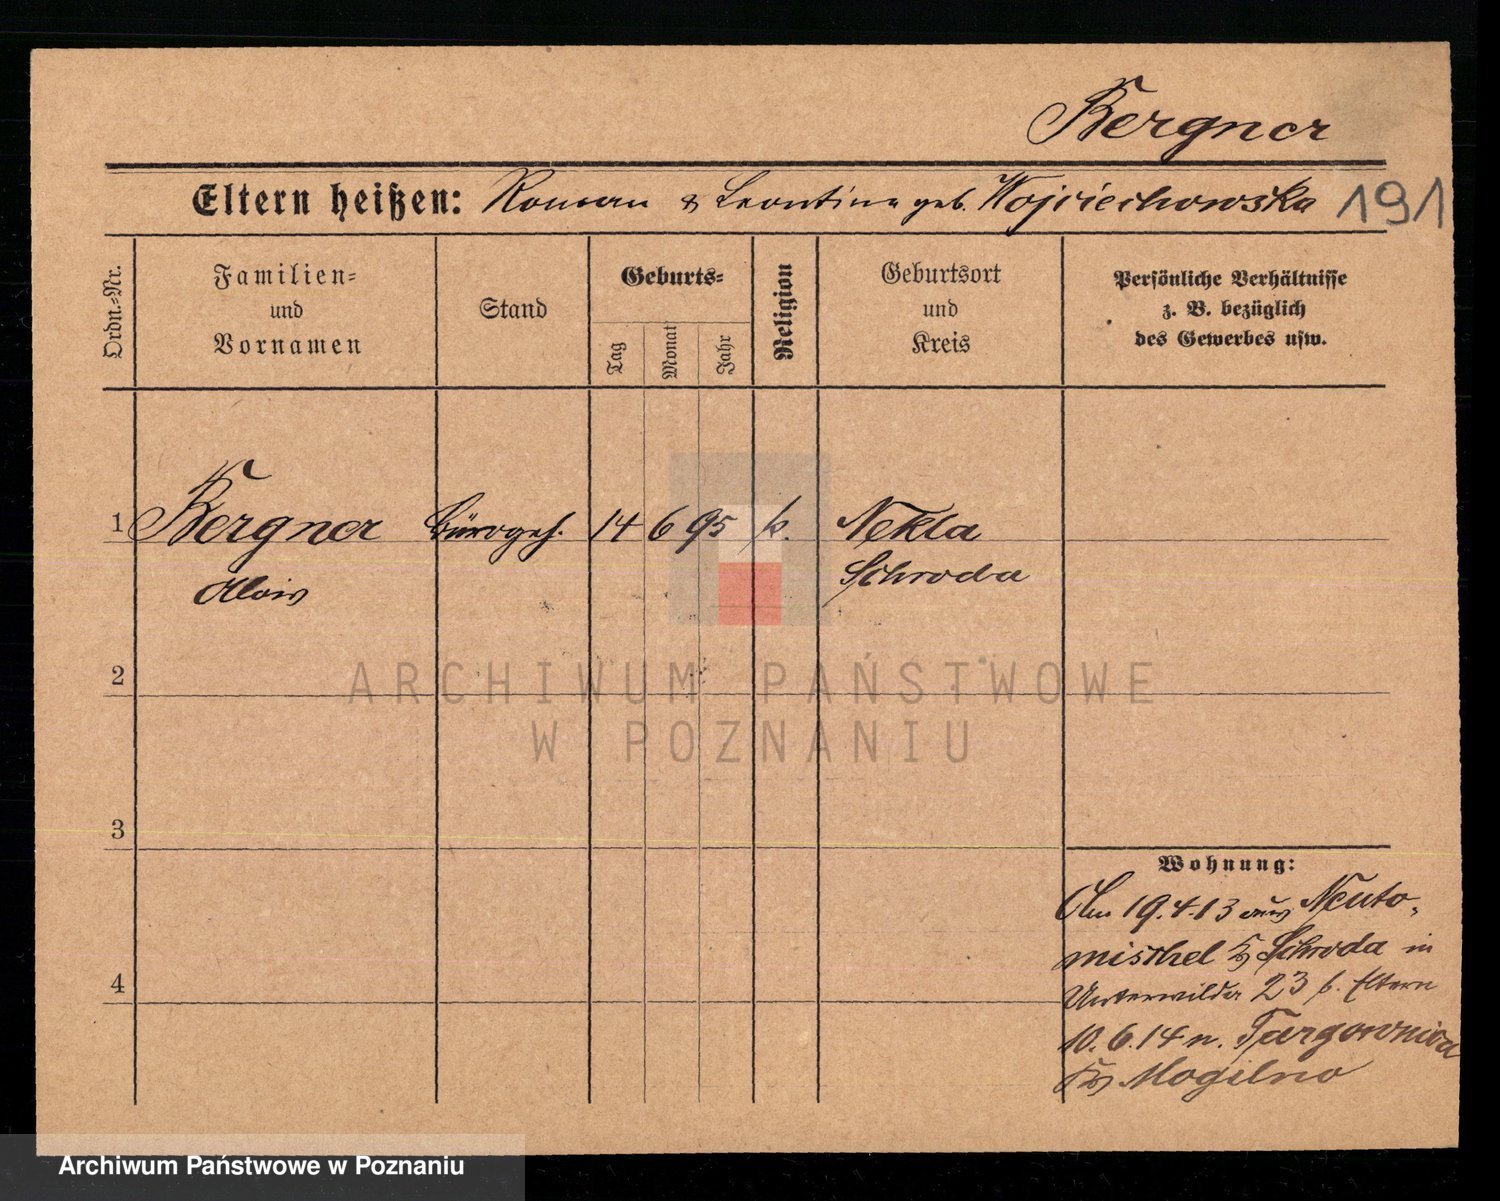 Bergner
Eltern heißen: Roman & Leontine geb. Wojciechowska 191
Ordn.=Nr.
Familien=
und
Vornamen
Stand
Geburts=
Tag
Monat
Jahr
Religion
Geburtsort
und
Kreis
Persönliche Verhältnisse
z. B. bezüglich
des Gewerbes usw.
1 Bergner Bürogeh. 14 6 95 k. Nekla
Alois Schroda
2
ARCHIWUM PAŃSTWOWE
W POZNANIU
3
Wohnung:
Am 19.4.13 aus Neuto-
mischel Krs Schroda in
4
Unterwilda 23 b. Eltern
10.6.14 n. Targownica
Krs Mogilno
Archiwum Państwowe w Poznaniu